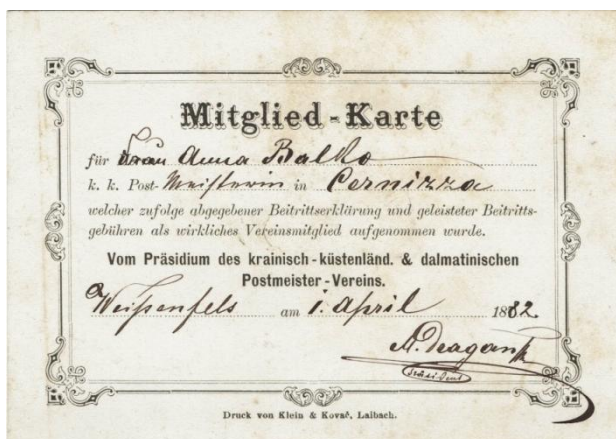 Mitglied-Karte
für Frau Anna Balko
k. k. Post-Meisterin in Cernizza
welcher zufolge abgegebener Beitrittserklärung und geleisteter Beitritts-
gebühren als wirkliches Vereinsmitglied aufgenommen wurde.
Vom Präsidium des krainisch-küstenländ. & dalmatinischen
Postmeister-Vereins.
Weißenfels am 1. April 1882
Präsident
Druck von Klein & Kovač, Laibach.